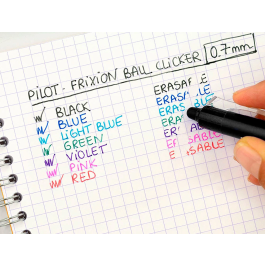 PILOT: FRIXION BALL CLICKER 0.7mm
BLACK
BLUE
LIGHT BLUE
GREEN
VIOLET
PINK
RED
ERASAF E
ERASA LE
ERAS BLE
ERA ABLE
ER ABLE
E ASABLE
E SABLE